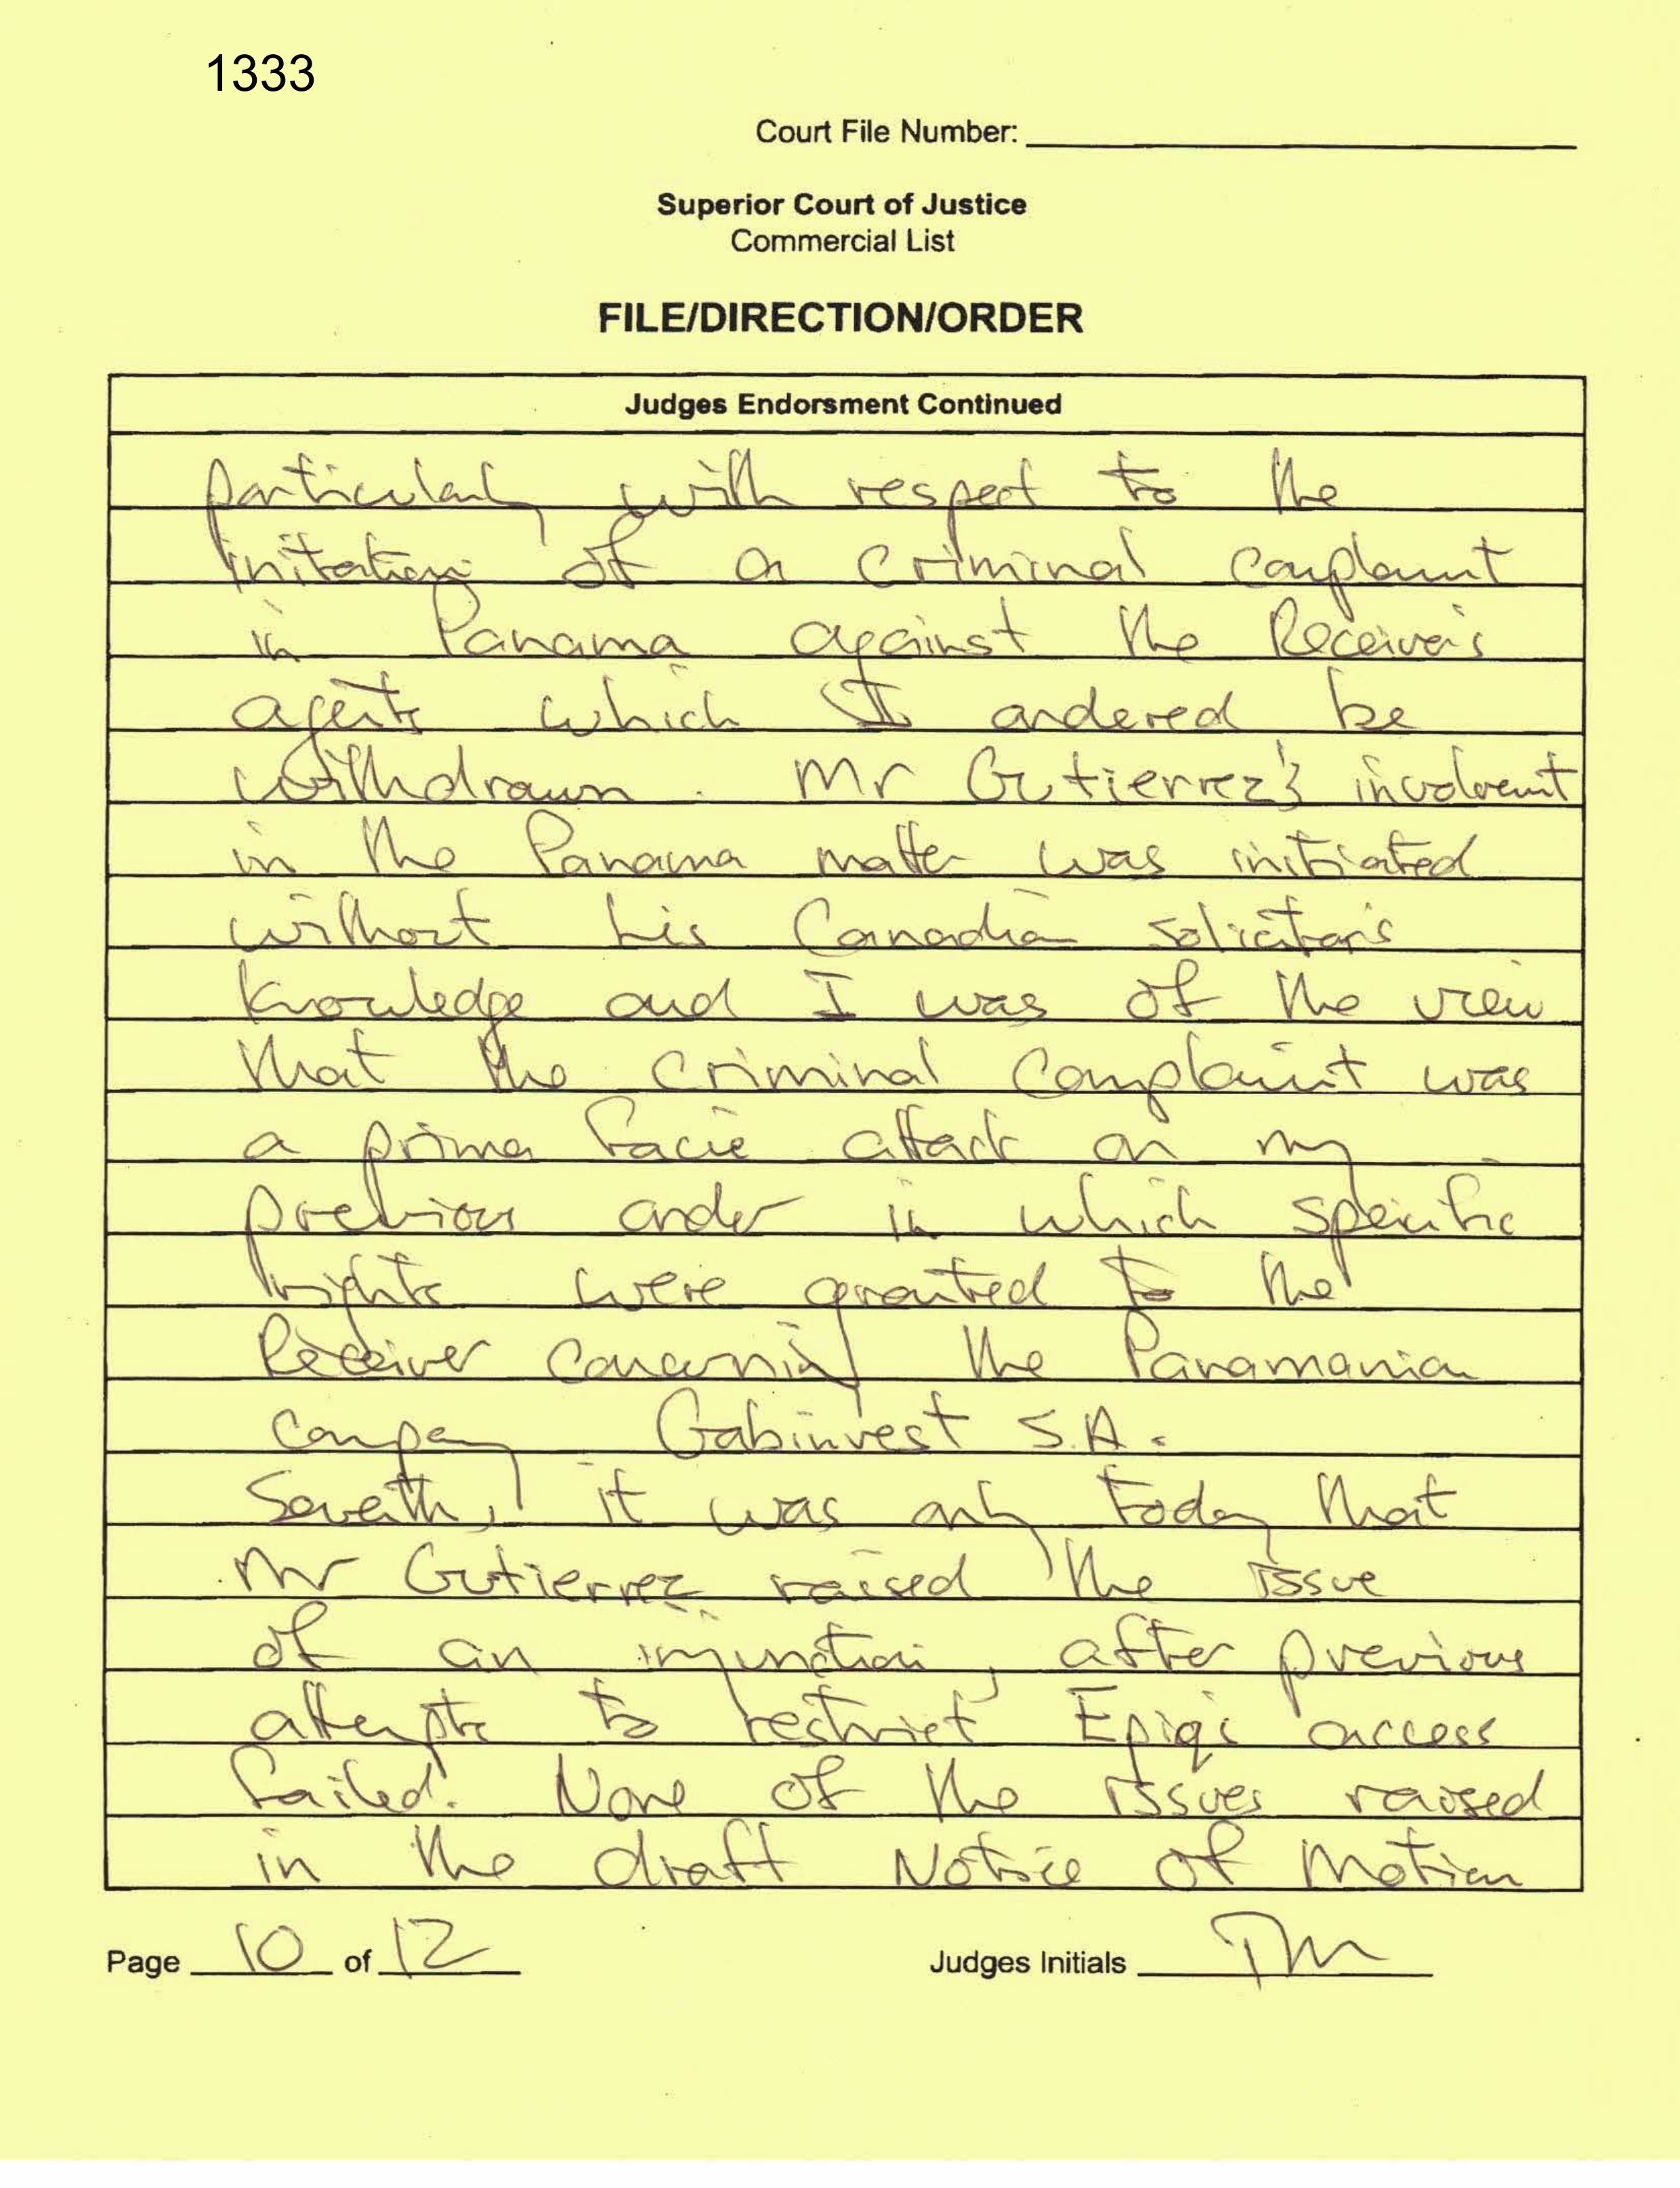 1333
Court File Number:
Superior Court of Justice
Commercial List
FILE/DIRECTION/ORDER
Judges Endorsment Continued
particularly with respect to the
initiation of a criminal complaint
in Panama against the Receiver's
agents which I ordered be
withdrawn. Mr Gutierrez's involvement
in the Panama matter was initiated
without his Canadian solicitor's
knowledge and I was of the view
that the criminal complaint was
a prima facie attack on my
previous order in which specific
rights were granted to the
Receiver concerning the Panamanian
company Gabinvest S.A.
Seventh, it was only today that
Mr Gutierrez raised the issue
of an injunction, after previous
attempts to restrict Epiqs access
failed. None of the issues raised
in the draft Notice of Motion
Page 10 of 12
Judges Initials TM